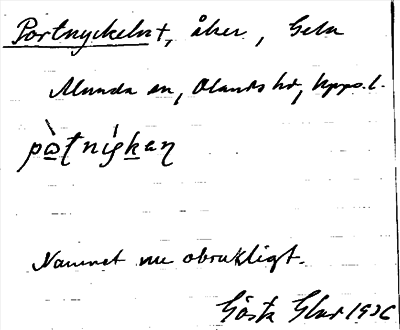 Portnyckeln †, åker, Gela
Alunda sn, Olands hd, Upps. l.
pòtníɕkan
Namnet nu obrukligt.
Gösta Glad 1926